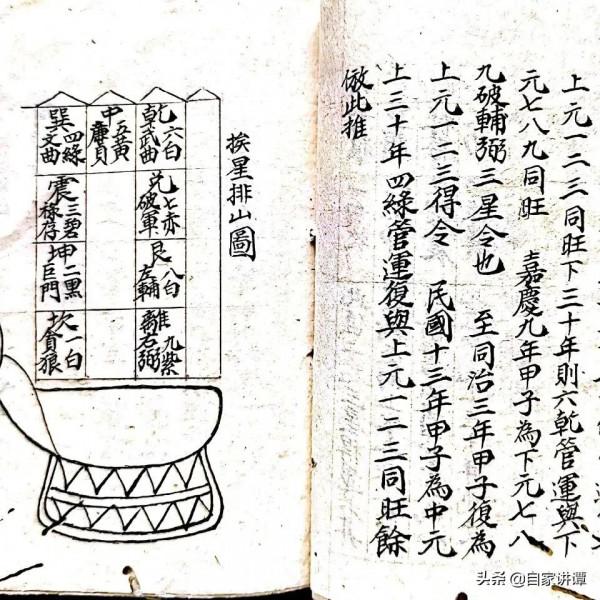 上元一二三同旺下三十年則六乾管運與下
元七八九同旺 嘉慶九年甲子為下元七八
九破輔弼三星令也 至同治三年甲子復為
上元一二三得令 民國十三年甲子為中元
上三十年四綠管運復與上元一二三同旺餘
倣此推
挨星排山圖
乾六白武曲
兌七赤破軍
艮八白左輔
離九紫右弼
中五黃廉貞
巽四綠文曲
震三碧祿存
坤二黑巨門
坎一白貪狼
头条 @自家讲谭